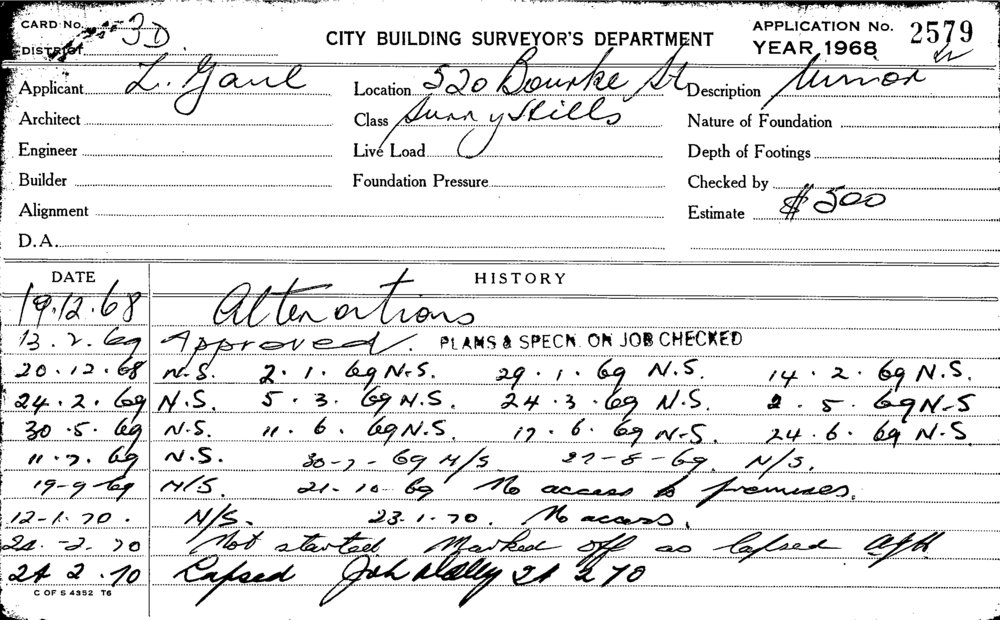 CARD No. 3D
DISTRICT
CITY BUILDING SURVEYOR'S DEPARTMENT
APPLICATION No. 2579
YEAR 1968
Applicant L. Gaul Location 520 Bourke St Description Minor
Architect Class Surry Hills Nature of Foundation
Engineer Live Load Depth of Footings
Builder Foundation Pressure Checked by
Alignment Estimate $500
D.A.
DATE HISTORY
19.12.68 Alterations
13.2.69 Approved. PLANS & SPECN. ON JOB CHECKED
20.12.68 N.S. 2.1.69 N.S. 29.1.69 N.S. 14.2.69 N.S.
24.2.69 N.S. 5.3.69 N.S. 24.3.69 N.S. 2.5.69 N-S
30.5.69 N.S. 11.6.69 N.S. 17.6.69 N-S. 24.6.69 N-S
11.7.69 N.S. 30-7-69 N/S 27-8-69. N/S.
19-9-69 N/S. 21-10-69 No access to premises.
12-1.70. N/S. 23.1.70. No access.
24.-2.70 Not started. Marked off as lapsed
24 2.70 Lapsed 24 2 70
C OF S 4352 T6